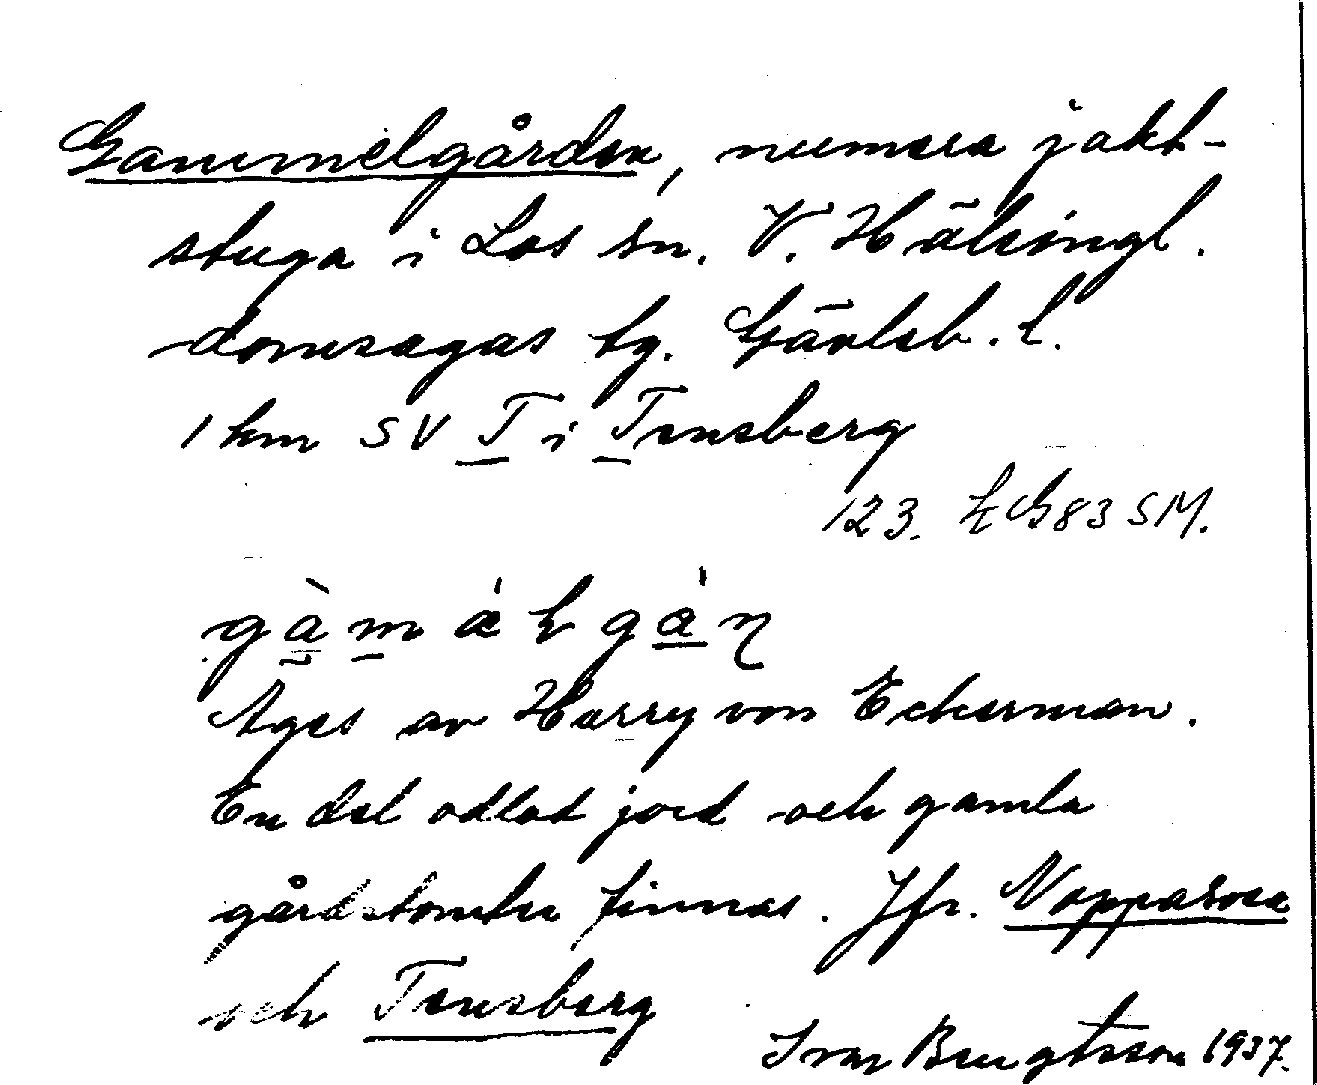 Gammelgården, numera jakt-
stuga i Los sn. V. Hälsingl.
domsagas tg. Gävleb. l.
1 km SV T i Tensberg
123. EG83 SM.
Ages av Harry von Eckerman.
En del odlad jord och gamla
gårdstomter finnas. Jfr. Noppasosa
och Tensberg
Ivar Bengtsson 1937.